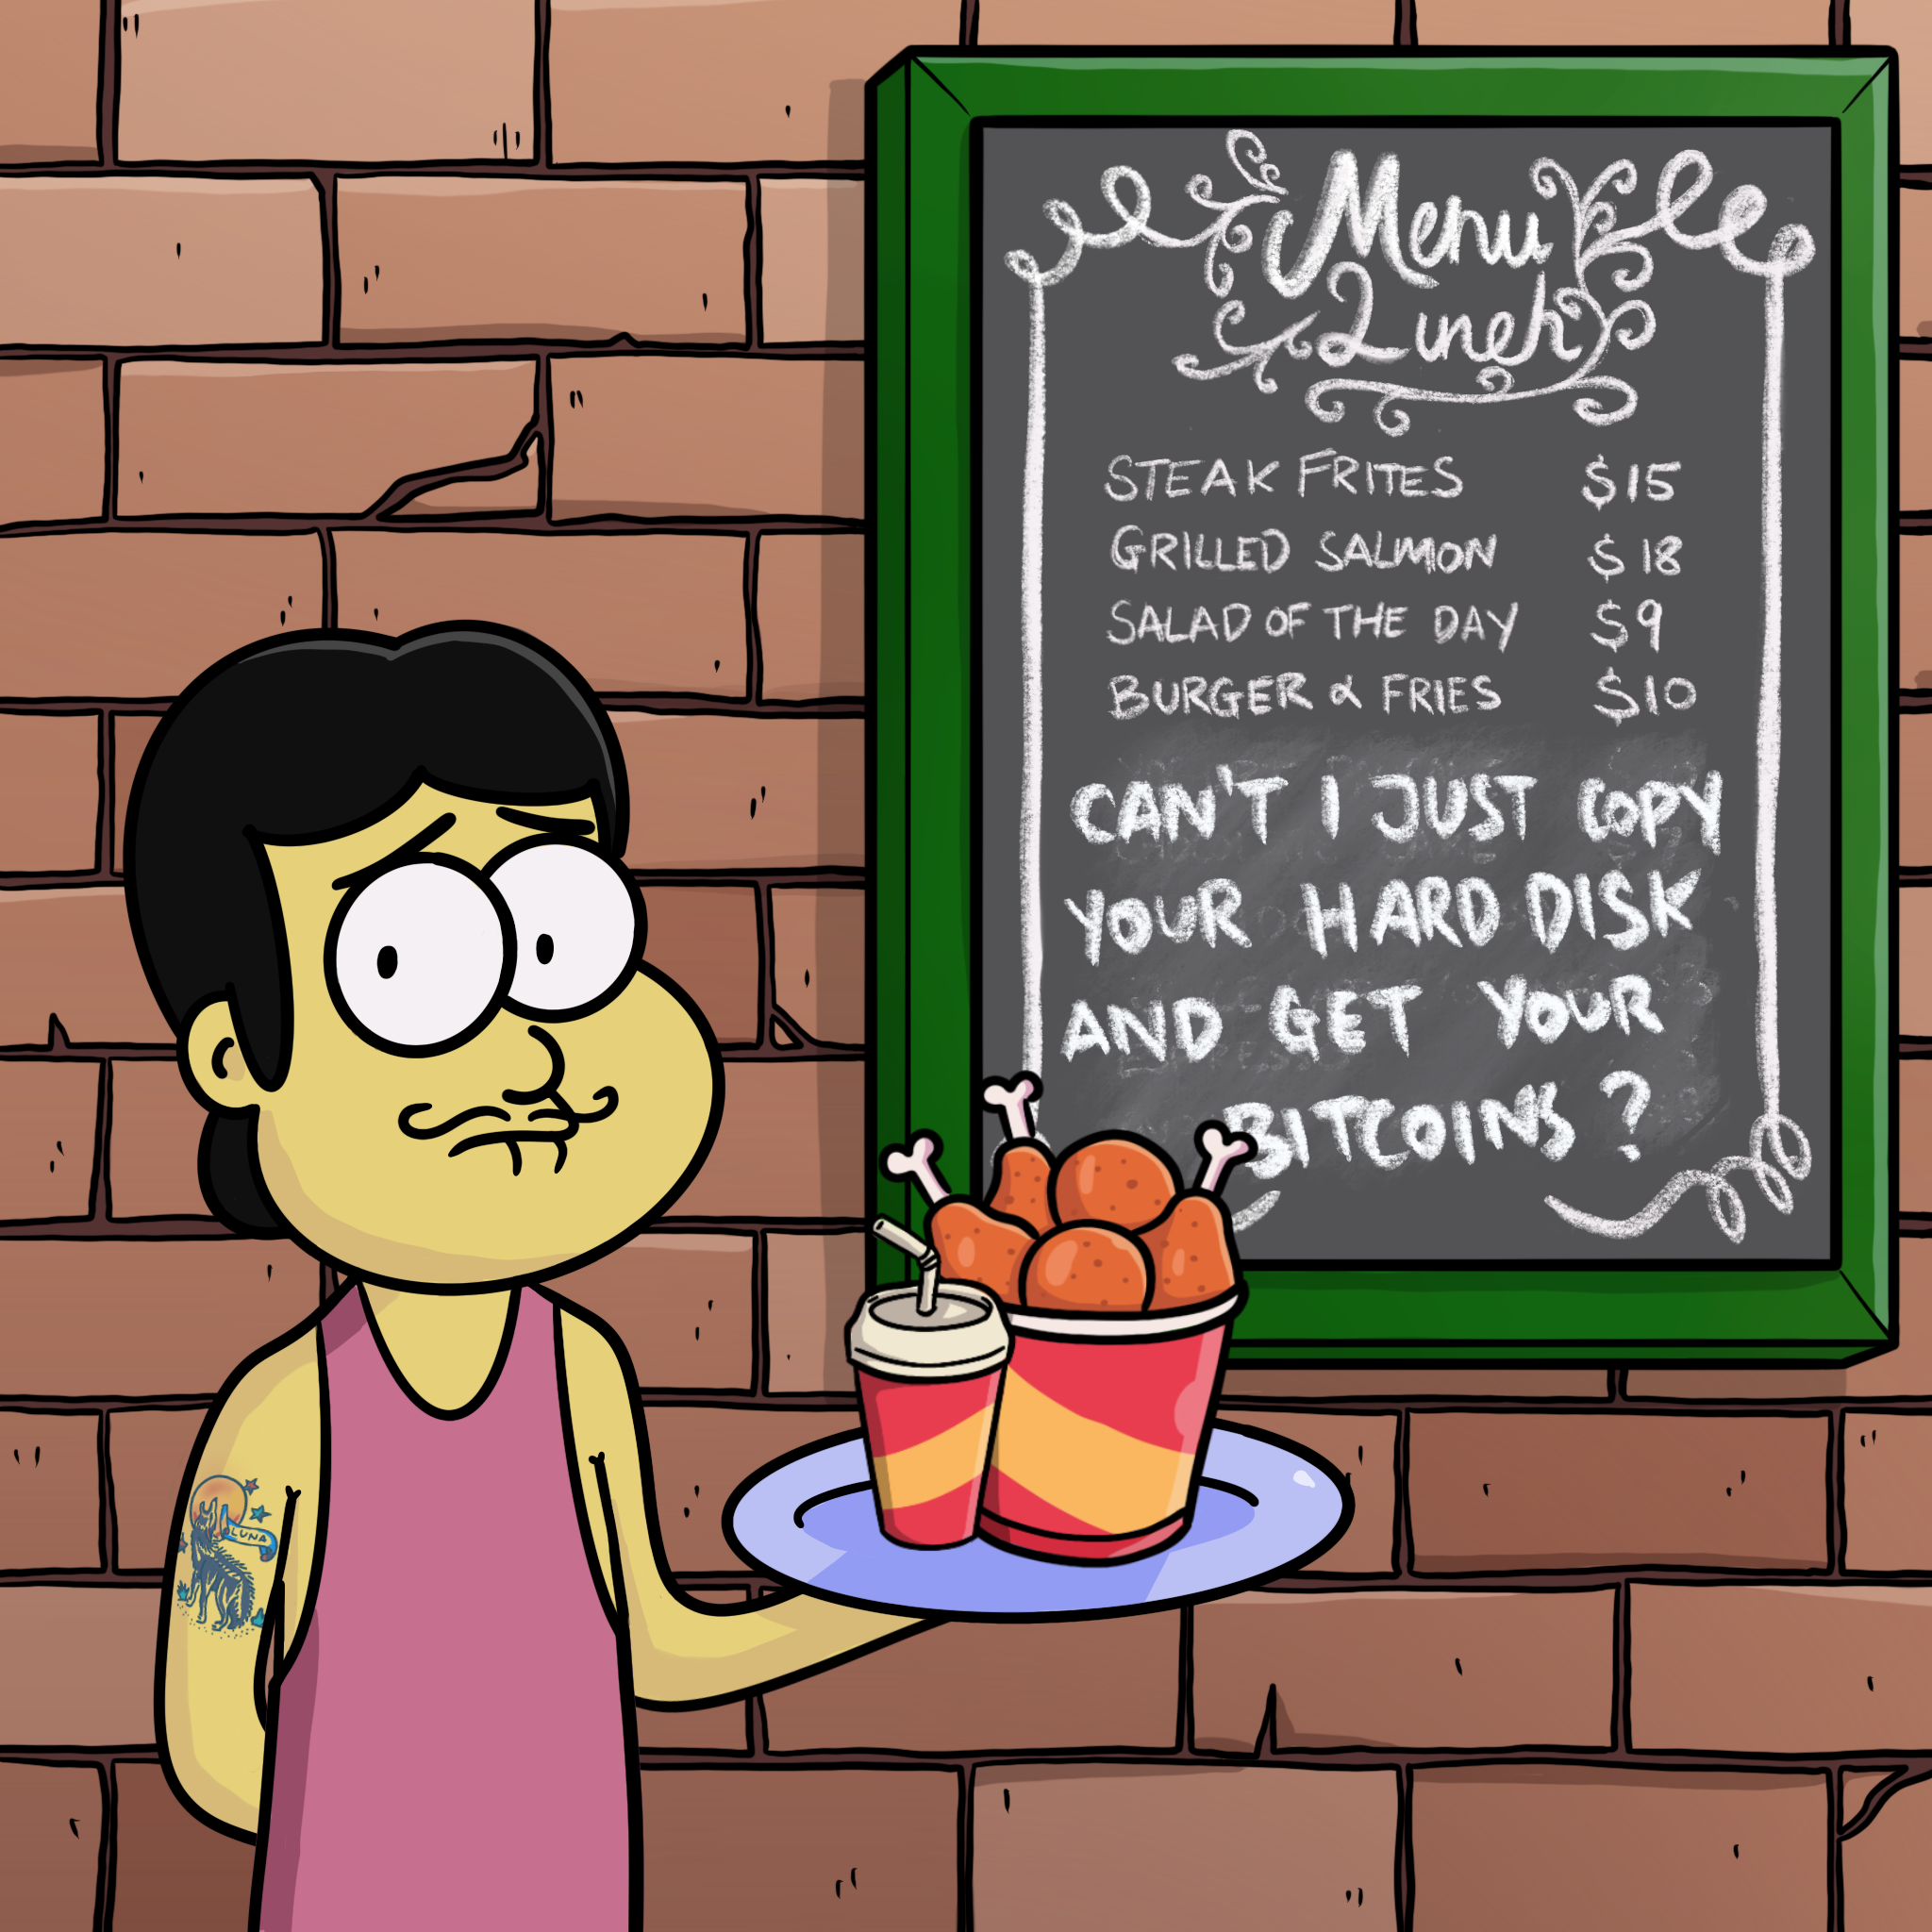 Menu
Lunch
STEAK FRITES $15
GRILLED SALMON $18
SALAD OF THE DAY $9
BURGER & FRIES $10
CAN'T I JUST COPY
YOUR HARD DISK
AND GET YOUR
BITCOINS ?
LUNA